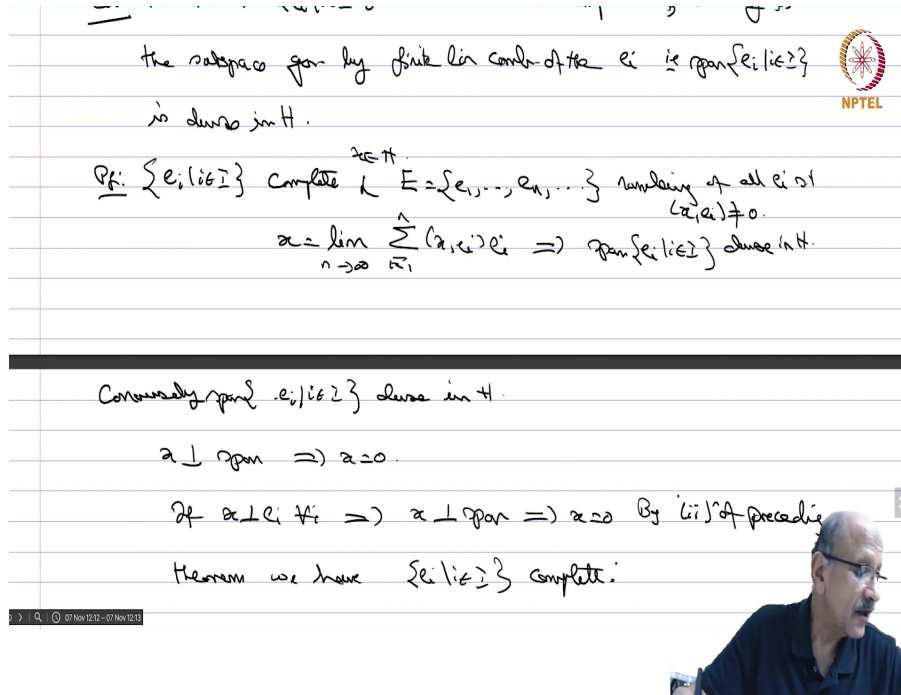 the subspace gen by finite lin comb. of the ei ie span{ei | i∈I}
NPTEL
is dense in H.
x∈H.
Pf: {ei | i∈I} complete & E = {e1, ..., en, ...} numbering of all ei st
(x, ei) ≠ 0.
x = lim n→∞ Σ i=1 n (x, ei) ei ⇒ span{ei | i∈I} dense in H.
Conversely span{ei | i∈I} dense in H.
x ⊥ span ⇒ x=0.
If x ⊥ ei ∀i ⇒ x ⊥ span ⇒ x=0 By (ii) of precedin
theorem we have {ei | i∈I} complete.
07 Nov 12:12 – 07 Nov 12:13